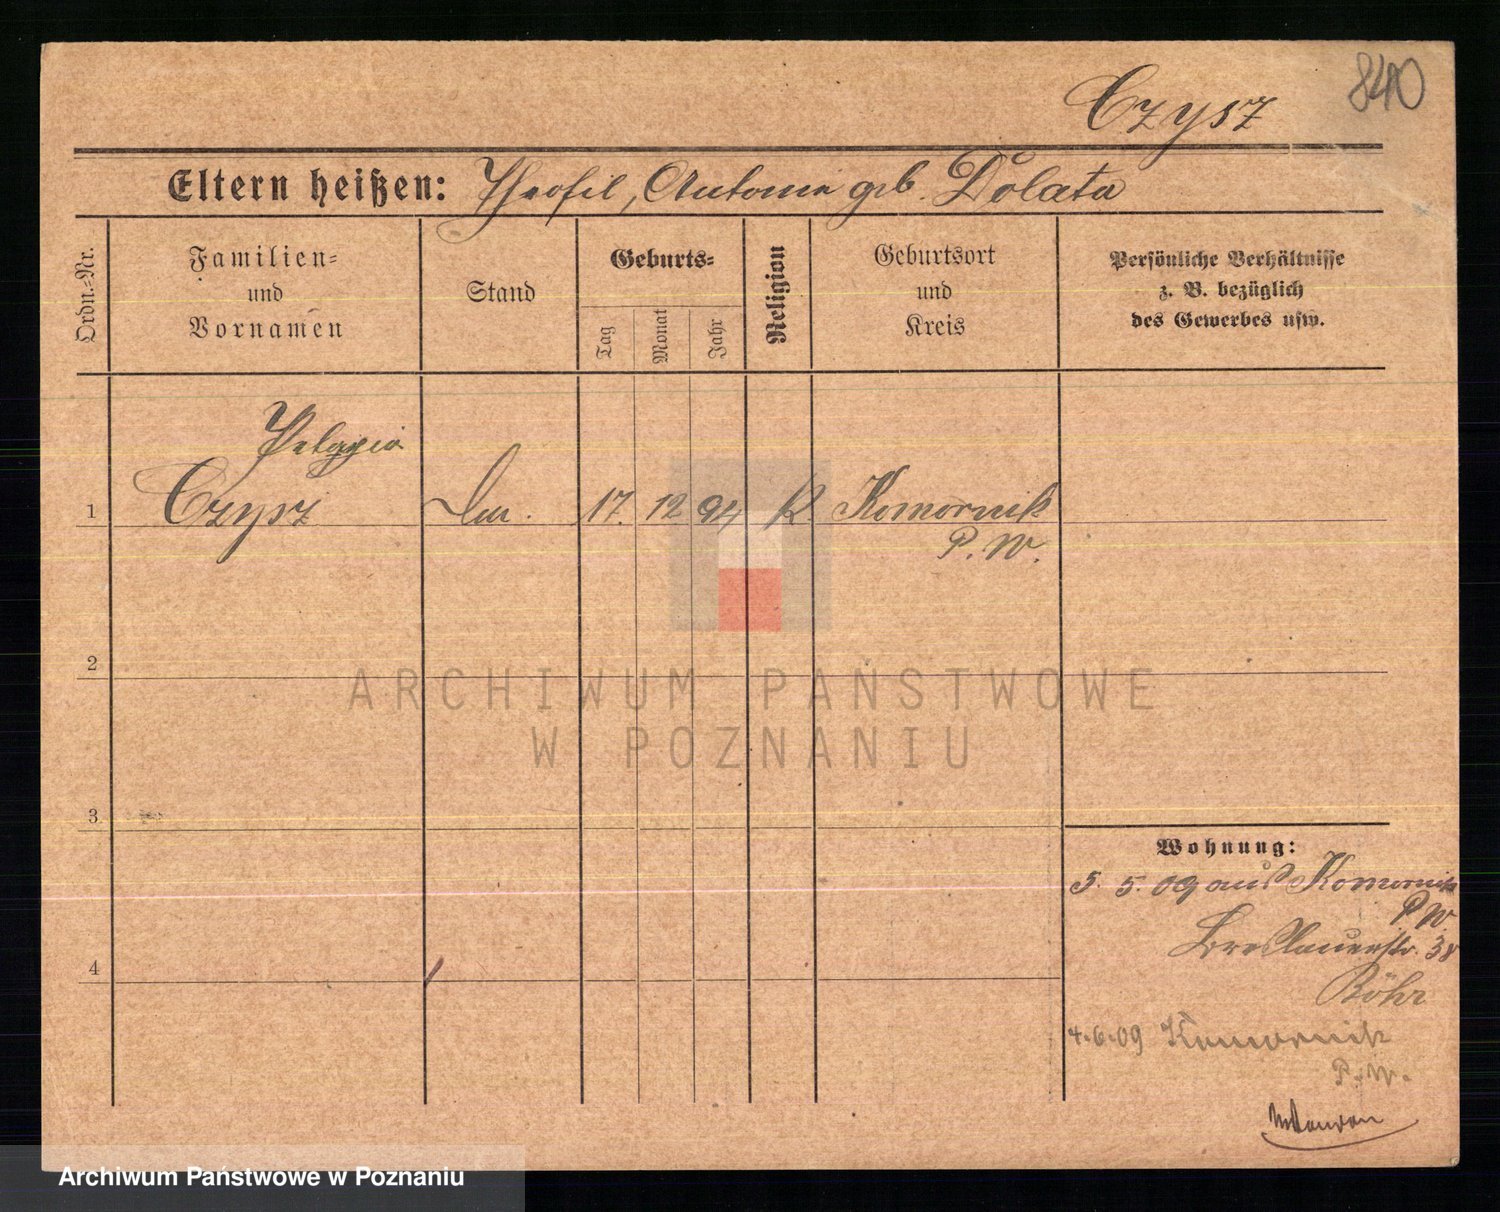 840
Czysz
Eltern heißen: Theofil, Antonie geb. Dolata
Ordn.-Nr.
Familien-
und
Vornamen
Stand
Geburts-
Tag
Monat
Jahr
Religion
Geburtsort
und
Kreis
Persönliche Verhältnisse
z. B. bezüglich
des Gewerbes usw.
Pelagia
1 Czysz 17. 12 94 K Komornik
P. W.
2
3
4
ARCHIWUM PAŃSTWOWE
W POZNANIU
Wohnung:
5. 5. 09 aus Komornik
P. W.
Breslauerstr. 38
Röhr
4.6.09 Komornik
P. W.
Archiwum Państwowe w Poznaniu